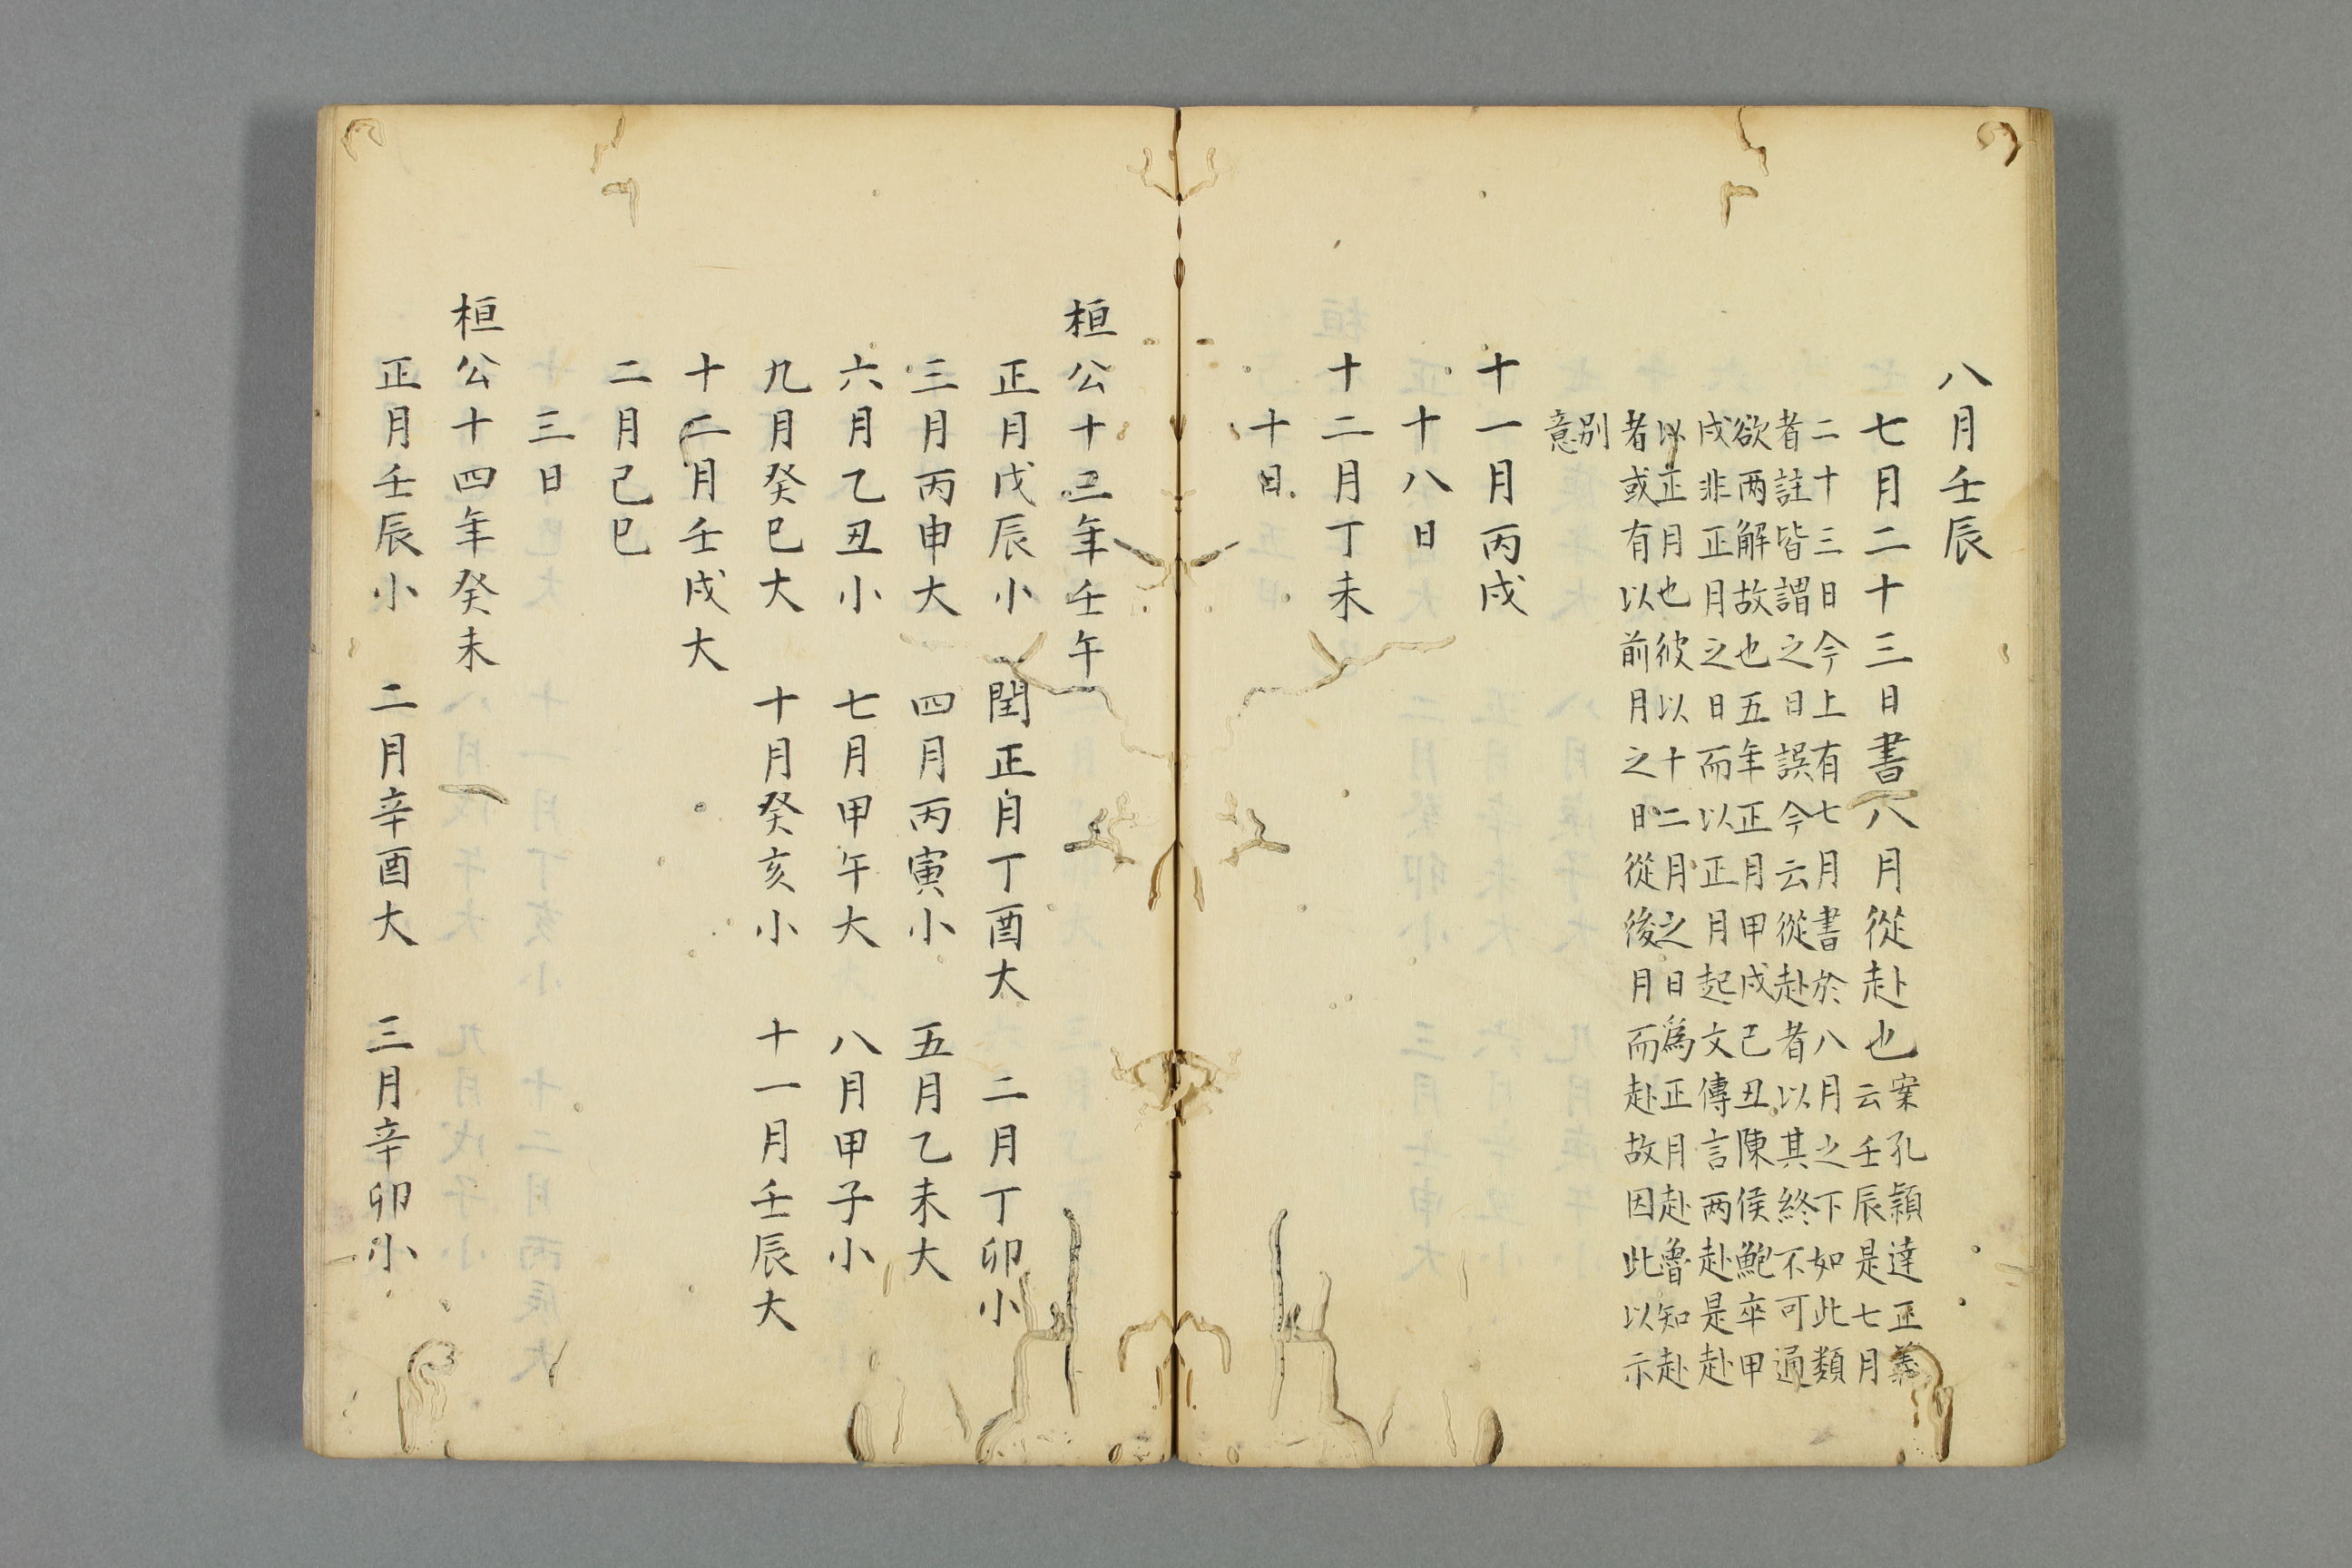 八月壬辰
七月二十三日書八月從赴也案孔穎達正義
云壬辰是七月
二十三日今上有七月書於八月之下如此類
者註皆謂之日誤今云從赴者以其終不可通
欲兩解故也五年正月甲戌己丑陳侯鮑卒甲
戌非正月之日而以正月起文傳言兩赴是赴
以正月也彼以十二月之日為正月赴魯知赴
者或有以前月之日從後月而赴故因此以示
別
意
十一月丙戌
十八日
十二月丁未
十日
桓公十三年壬午
正月戊辰小 閏正月丁酉大 二月丁卯小
三月丙申大 四月丙寅小 五月乙未大
六月乙丑小 七月甲午大 八月甲子小
九月癸巳大 十月癸亥小 十一月壬辰大
十二月壬戌大
二月己巳
三日
桓公十四年癸未
正月壬辰小 二月辛酉大 三月辛卯小